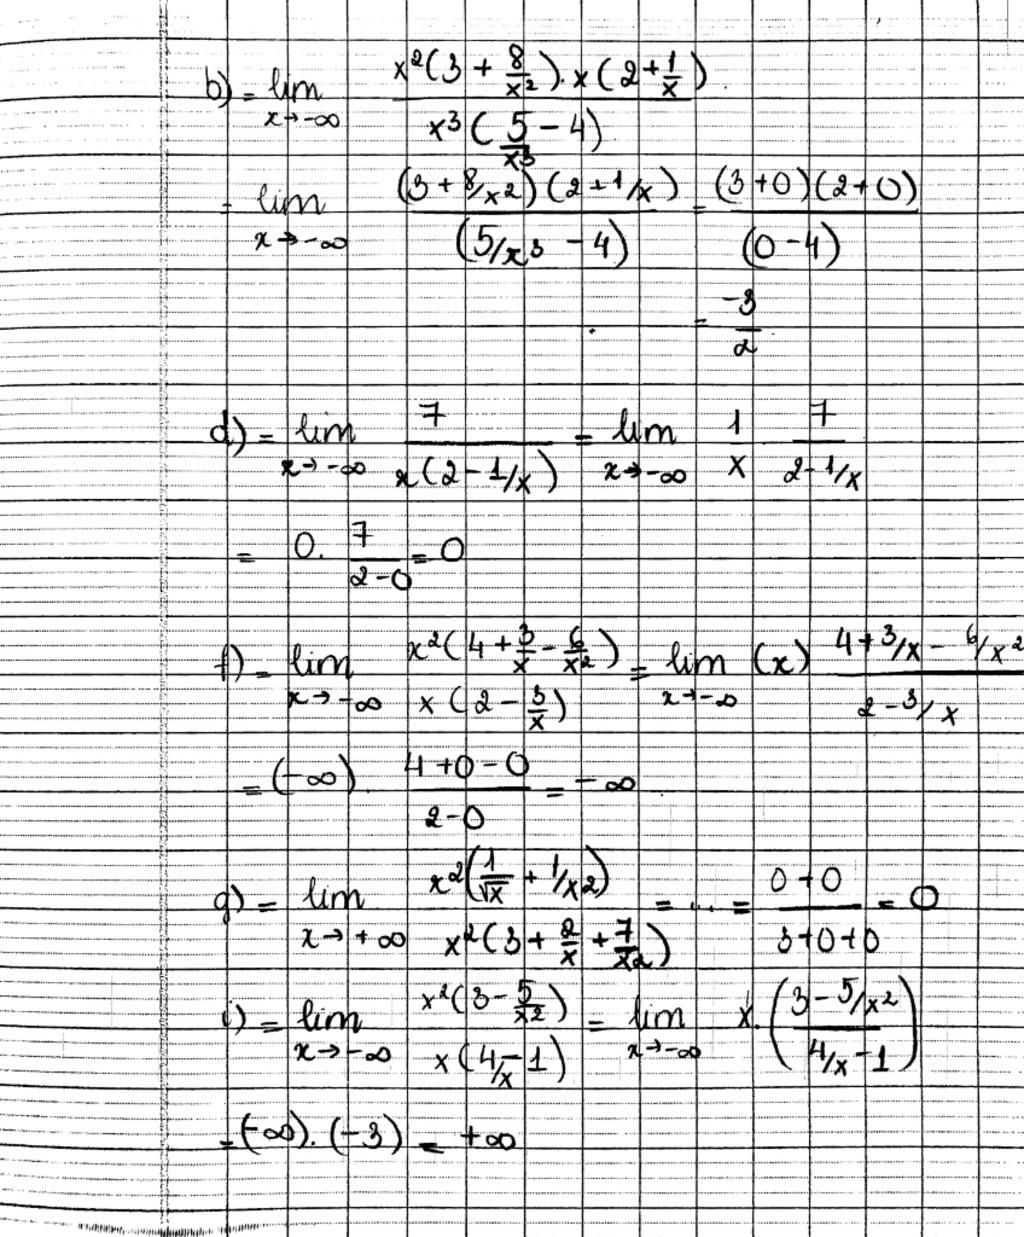 b) = lim x→-∞ x²(3 + 8/x²).x(2+1/x) / x³(5/x³ - 4)
= lim x→-∞ (3 + 8/x²)(2+1/x) / (5/x³ - 4) = (3+0)(2+0) / (0-4)
= -3/2
d) = lim x→-∞ 7 / x(2 - 1/x) = lim x→-∞ 1/x 7/2-1/x
= 0. 7/2-0 = 0
f) = lim x→-∞ x²(4 + 3/x - 6/x²) / x(2 - 3/x) = lim x→-∞ (x) 4+3/x - 6/x² / 2-3/x
= (-∞). 4+0-0 / 2-0 = -∞
g) = lim x→+∞ x²(1/√x + 1/x2) / x²(3 + 2/x + 7/x2) = ... = 0+0 / 3+0+0 = 0
i) = lim x→-∞ x²(3 - 5/x2) / x(4/x - 1) = lim x→-∞ x.(3 - 5/x² / 4/x - 1)
= (-∞).(-3) = +∞